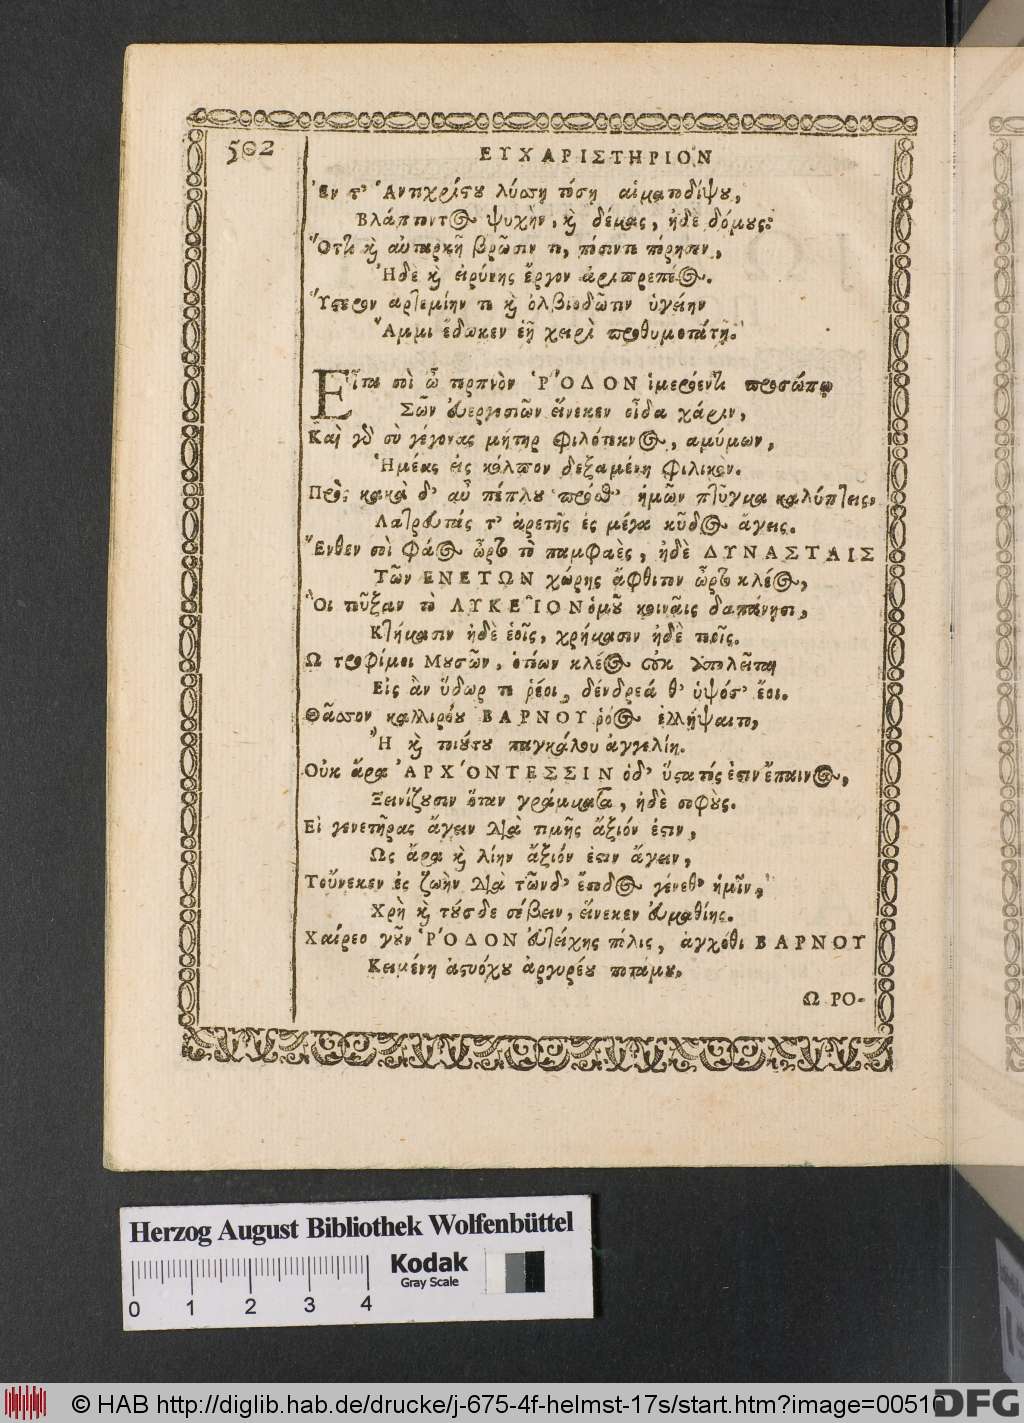 502
ΕΥΧΑΡΙΣΤΗΡΙΟΝ
Ἐν τ' Ἀντιχρίστου λύσση τόση αἱματοδίψου,
Βλάπτοντος ψυχὴν, καὶ δέμας, ἠδὲ δόμους:
Ὅττι καὶ αὐταρκῆ βρῶσιν τε, πόσιν τε πόρησεν,
Ἠδὲ καὶ εἰρήνης ἔργον ἀριπρεπέος.
Ὕστερον ἀρτεμίην τε καὶ ὀλβιοδῶτιν ὑγείην
Ἄμμι ἔδωκεν ἑῇ χειρὶ προθυμοτάτῃ.
Εἶτα σοὶ ὦ τερπνὸν ῬΟΔΟΝ ἱμερόεντι προσώπῳ
Σῶν εὐεργεσιῶν εἵνεκεν οἶδα χάριν,
Καὶ γὰρ σὺ γέγονας μήτηρ φιλότεκνος, ἀμύμων,
Ἡμέας εἰς κόλπον δεξαμένη φιλικόν.
Πρὸς κακὰ δ' αὖ πέπλου ἡμῶν πτῦγμα καλύπτεις,
τ' ἀρετῆς ἐς μέγα κῦδος ἄγεις.
Ἔνθεν σοὶ φάος ὦρτο τὸ παμφαὲς, ἠδὲ ΔΥΝΑΣΤΑΙΣ
Τῶν ΕΝΕΤΩΝ χώρης ἄφθιτον ὦρτο κλέος,
Οἳ τεῦξαν τὸ ΛΥΚΕΙΟΝ ὁμοῦ κοιναῖς δαπάνησι,
Κτήμασιν ἠδὲ ἑοῖς, χρήμασιν ἠδὲ τεοῖς.
Ω τροφίμοι Μουσῶν, ὁπόων κλέος οὐκ ἀπολεῖται
Εἰς ἂν ὕδωρ τε ῥέοι, δένδρεά θ' ὑψός' ἔοι.
Θᾶσσον καλλιρόου ΒΑΡΝΟΥ ῥόος ἐλλήψαιτο,
Ἢ καὶ τοιούτου παγκάλου ἀγγελίη.
Οὐκ ἄρα ἈΡΧΟΝΤΕΣΣΙΝ ὁδ' ὕστατός ἐστιν ἔπαινος,
Ξεινίζουσιν ὅταν γράμματα, ἠδὲ σοφούς.
Εἰ γενετῆρας ἄγειν διὰ τιμῆς ἄξιόν ἐστιν,
Ὡς ἄρα καὶ λίην ἄξιόν ἐστιν ἄγειν,
Τοὔνεκεν ἐς ζωὴν διὰ τῶνδ' ἔσοδος γένεθ' ἡμῖν,
Χρὴ καὶ τούσδε σέβειν, εἵνεκεν εὐμαθίης.
Χαίρεο γοῦν ῬΟΔΟΝ εὐτείχης πόλις, ἀγχόθι ΒΑΡΝΟΥ
Κειμένη ἀργυρέου ποταμοῦ.
Ω ΡΟ-
Herzog August Bibliothek Wolfenbüttel
Kodak
Gray Scale
0 1 2 3 4
© HAB http://diglib.hab.de/drucke/j-675-4f-helmst-17s/start.htm?image=00510
DFG